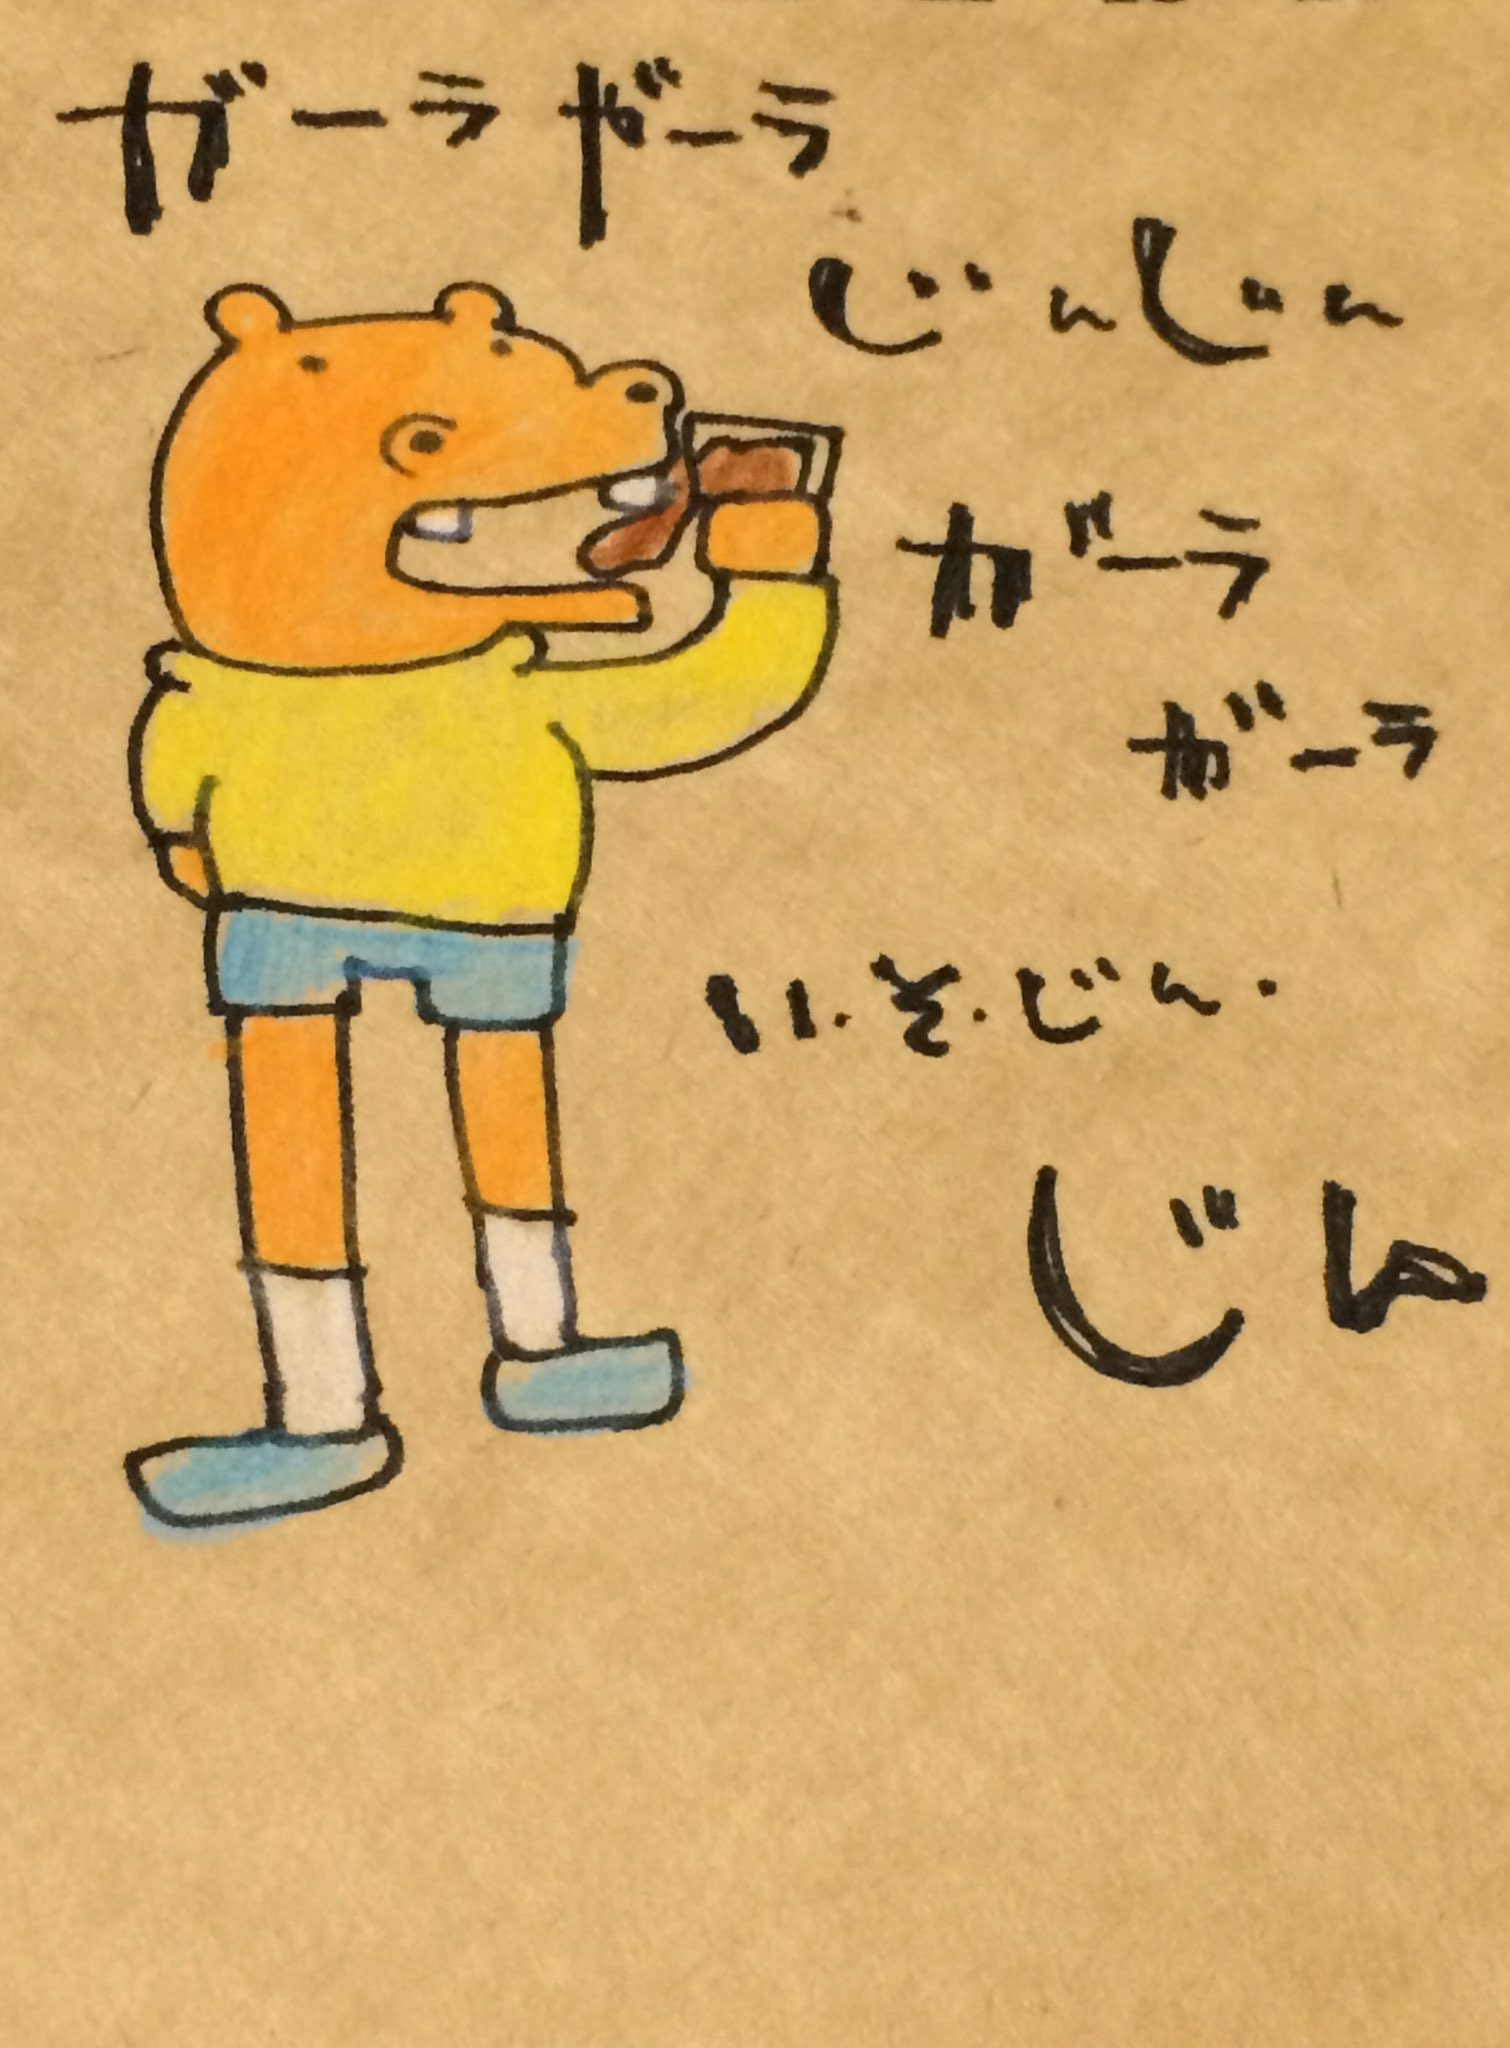 ガーラガーラ
じんじん
ガーラ
ガーラ
い.そ.じん.
じん